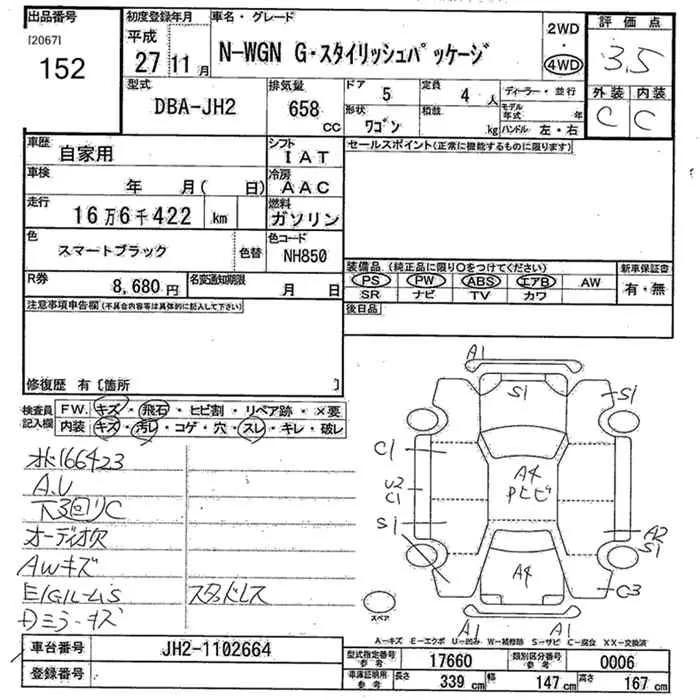 出品番号 初度登録年月 車名・グレード 2WD・4WD 評価点
[2067]
152
平成 27 11月
N-WGN G・スタイリッシュパッケージ
3.5
型式 DBA-JH2
排気量 658 CC
ドア 5 定員 4人 ディーラー・並行
形状 ワゴン 積載 kg モデル年式 年
ハンドル 左・右
外装 内装
C C
車歴 自家用 シフト IAT
セールスポイント(正常に機能するものに限ります)
車検 年 月( 日) 冷房 AAC
走行 16万6千422 km 燃料 ガソリン
色 スマートブラック 色替 色コード NH850
装備品 (純正品に限り○をつけてください) 新車保証書
PS PW ABS エアB AW 有・無
SR ナビ TV カワ
R券 8,680円 名変通知期限 月 日
後日品
注意事項申告欄(不具合内容等は具体的に記入して下さい)
修復歴 有〔箇所 〕
検査員記入欄 FW. キズ・飛石・ヒビ割・リペア跡・×要
内装 キズ・汚レ・コゲ・穴・スレ・キレ・破レ
ホ166423
A.U
下3回リC
オーディオ欠
AWキズ
スタッドレス
Dミラーキズ
A1
S1
S1
C1
U2
C1
A4
Pヒビ
S1
A2
S1
A4
C3
A1 A1
スペア
A—キズ E—エクボ U—凹み W—補修跡 S—サビ C—腐食 XX—交換済
車台番号 JH2-1102664
登録番号
型式指定番号 参考 17660 類別区分番号 参考 0006
車庫証明用 参考 長さ 339 cm 幅 147 cm 高さ 167 cm